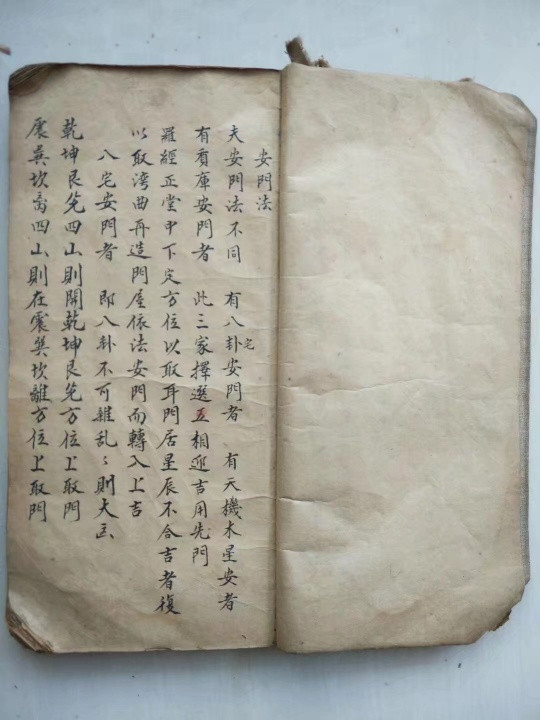 安門法
夫安門法不同 有八卦宅安門者 有天機木星安者
有貢庫安門者 此三家擇選互相迎吉用先門
羅經正堂中下定方位以取耳門居星辰不合吉者復
以取湾曲再造門屋依法安門而轉入上吉
八宅安門者 即八卦不可雜乱〻則大凶
乾坤艮兊四山則開乾坤艮兊方位上取門
震巽坎离四山則在震巽坎離方位上取門